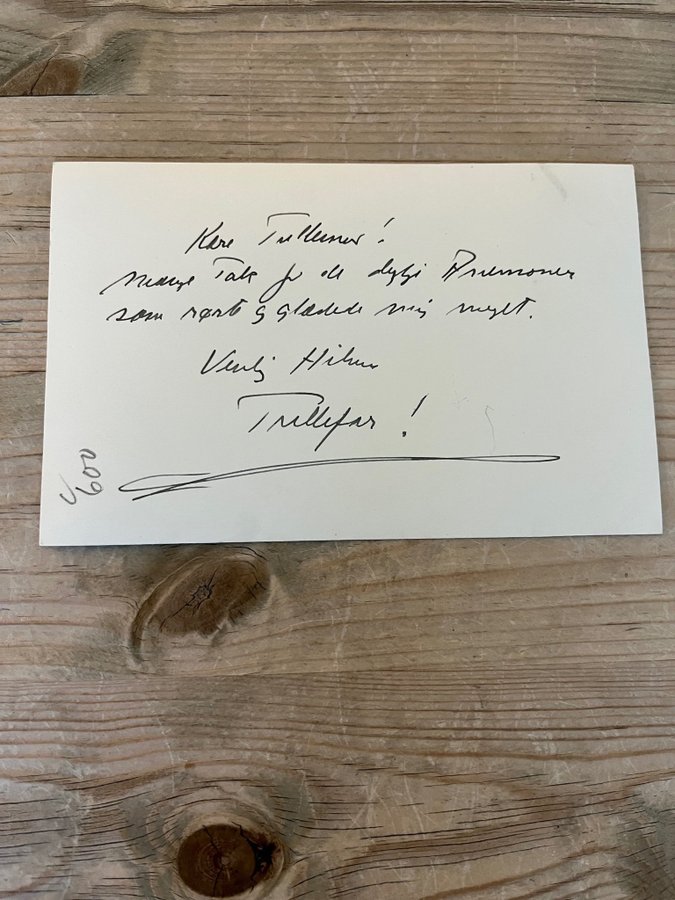 Kære Trillemor!
Mange Tak for de dejlige Anemoner
som rørte og glædede mig meget.
Venlig Hilsen
Trillefar!
600